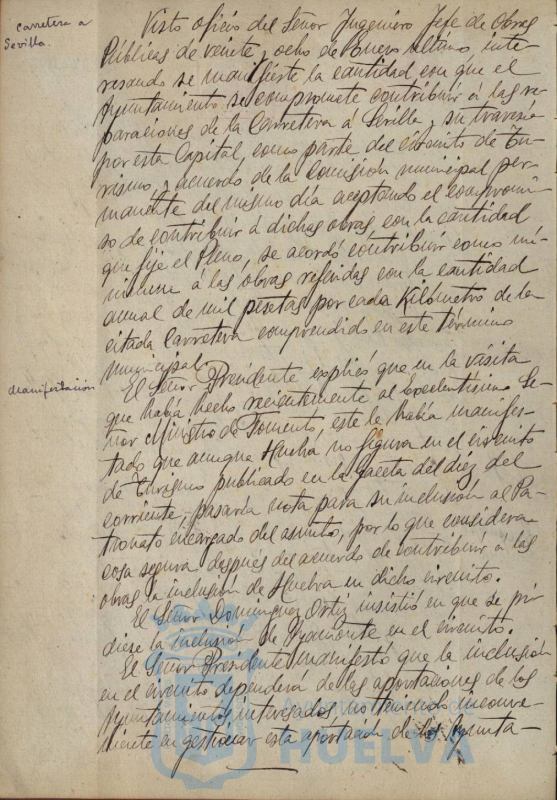 Carretera a
Sevilla.
Visto oficio del Señor Ingeniero Jefe de Obras
Públicas de veinte y ocho de Enero último, inte-
resando se manifieste la cantidad con que el
Ayuntamiento se compromete contribuir á las re-
paraciones de la Carretera á Sevilla y su travesía
por esta Capital, como parte del circuito de Tu-
rismo, y acuerdo de la Comisión municipal per-
manente del mismo día aceptando el compromi-
so de contribuir á dichas obras con la cantidad
que fije el Pleno, se acordó contribuir como mí-
nimun á las obras referidas con la cantidad
anual de mil pesetas por cada Kilómetro de la
citada Carretera comprendido en este término
municipal.
Manifestación
El Señor Presidente explicó que en la visita
que había hecho recientemente al Excelentísimo Se-
ñor Ministro de Fomento, este le había manifes-
tado que aunque Huelva no figura en el circuito
de Turismo publicado en la Gaceta del diez del
corriente, pasaría nota para su inclusión al Pa-
tronato encargado del asunto, por lo que considera
cosa segura después del acuerdo de contribuir á las
obras la inclusión de Huelva en dicho circuito.
El Señor Dominguez Ortiz insistió en que se pi-
diese la inclusión de Ayamonte en el circuito.
El Señor Presidente manifestó que la inclusión
en el circuito dependerá de las aportaciones de los
Ayuntamientos interesados, no teniendo inconve-
niente en gestionar esta aportación de los Ayunta-
HUELVA